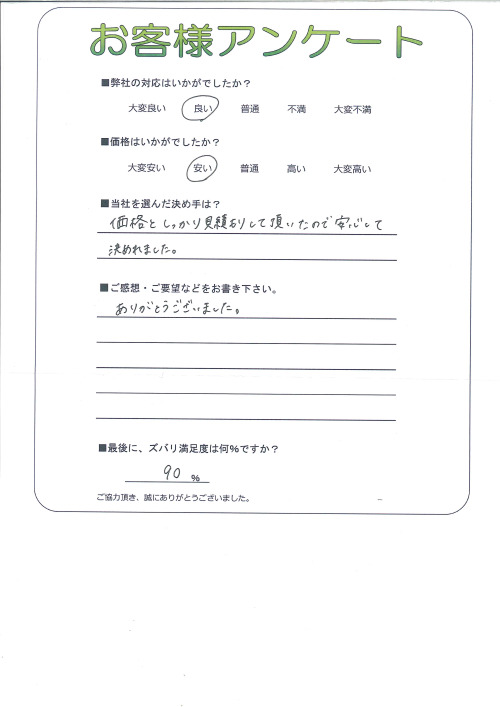 お客様アンケート
■弊社の対応はいかがでしたか？
大変良い 良い 普通 不満 大変不満
■価格はいかがでしたか？
大変安い 安い 普通 高い 大変高い
■当社を選んだ決め手は？
価格としっかり見積もりして頂いたので安心して
決めれました。
■ご感想・ご要望などをお書き下さい。
ありがとうございました。
■最後に、ズバリ満足度は何%ですか？
90 %
ご協力頂き、誠にありがとうございました。